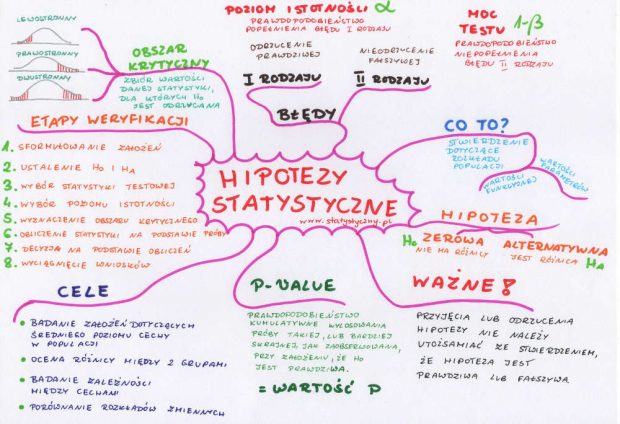 LEWOSTRONNY
PRAWOSTRONNY
DWUSTRONNY
OBSZAR
KRYTYCZNY
ZBIÓR WARTOŚCI
DANEJ STATYSTYKI,
DLA KTÓRYCH H0
JEST ODRZUCANA
POZIOM ISTOTNOŚCI α
PRAWDOPODOBIEŃSTWO
POPEŁNIENIA BŁĘDU I RODZAJU
ODRZUCENIE
PRAWDZIWEJ
I RODZAJU
NIEODRZUCENIE
FAŁSZYWEJ
II RODZAJU
BŁĘDY
MOC
TESTU 1-β
PRAWDOPODOBIEŃSTWO
NIEPOPEŁNIENIA
BŁĘDU II RODZAJU
ETAPY WERYFIKACJI
1. SFORMUŁOWANIE ZAŁOŻEŃ
2. USTALENIE H0 I HA
3. WYBÓR STATYSTYKI TESTOWEJ
4. WYBÓR POZIOMU ISTOTNOŚCI
5. WYZNACZENIE OBSZARU KRYTYCZNEGO
6. OBLICZENIE STATYSTYKI NA PODSTAWIE PRÓBY
7. DECYZJA NA PODSTAWIE OBLICZEŃ
8. WYCIĄGNIĘCIE WNIOSKÓW
HIPOTEZY
STATYSTYCZNE
www.statystyczny.pl
CO TO?
STWIERDZENIE
DOTYCZĄCE
ROZKŁADU
POPULACJI
WARTOŚCI
PARAMETRÓW
WARTOŚCI
FUNKCYJNEJ
HIPOTEZA
H0 ZEROWA
NIE MA RÓŻNICY
ALTERNATYWNA
JEST RÓŻNICA HA
CELE
BADANIE ZAŁOŻEŃ DOTYCZĄCYCH
ŚREDNIEGO POZIOMU CECHY
W POPULACJI
OCENA RÓŻNICY MIĘDZY 2 GRUPAMI
BADANIE ZALEŻNOŚCI
MIĘDZY CECHAMI
PORÓWNANIE ROZKŁADÓW ZMIENNYCH
P-VALUE
PRAWDOPODOBIEŃSTWO
KUMULATYWNE WYLOSOWANIA
PRÓBY TAKIEJ, LUB BARDZIEJ
SKRAJNEJ, JAK ZAOBSERWOWANA,
PRZY ZAŁOŻENIU, ŻE H0
JEST PRAWDZIWA.
= WARTOŚĆ P
WAŻNE!
PRZYJĘCIA LUB ODRZUCENIA
HIPOTEZY NIE NALEŻY
UTOŻSAMIAĆ ZE STWIERDZENIEM,
ŻE HIPOTEZA JEST
PRAWDZIWA LUB FAŁSZYWA.